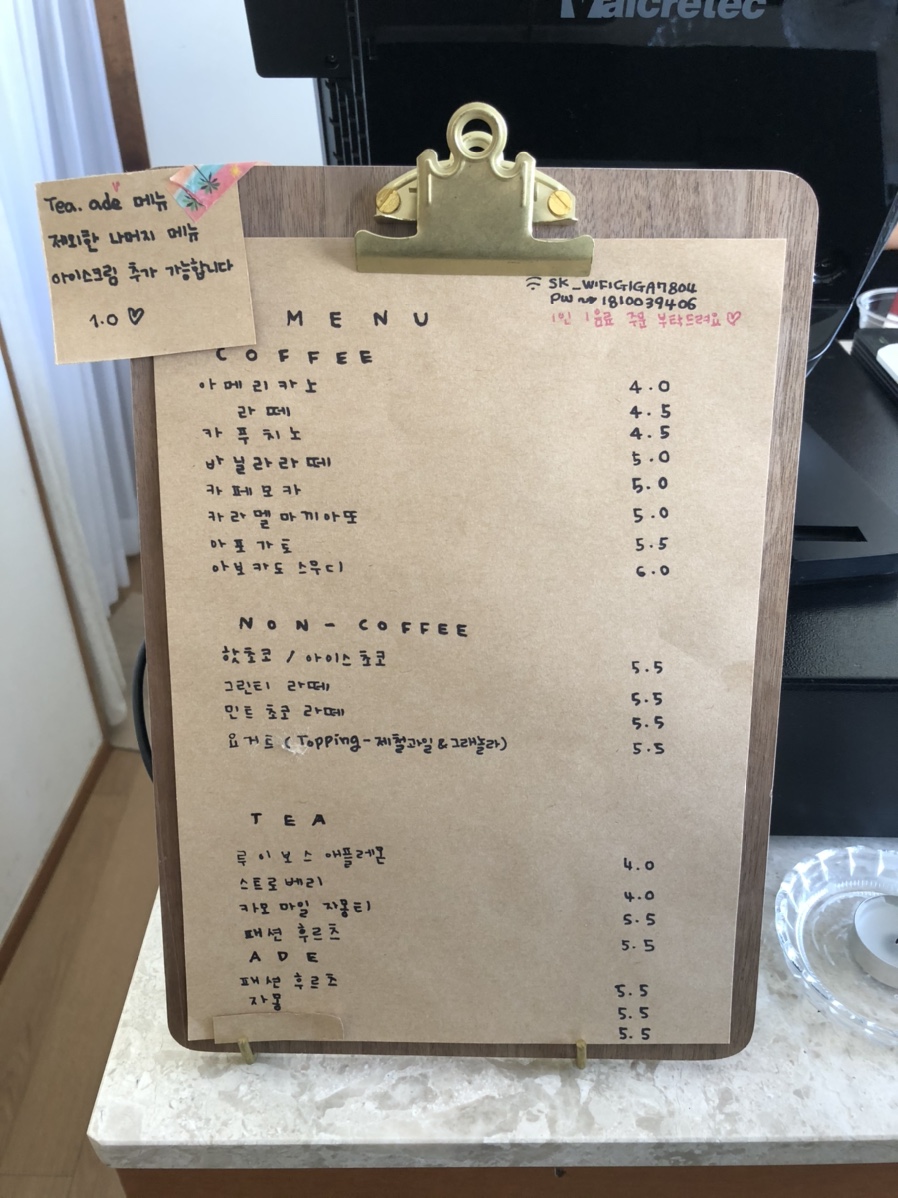 Malcretec
Tea. ade 메뉴
제외한 나머지 메뉴
아이스크림 추가 가능합니다
1.0 ♡
SK_WiFiGIGA7804
PW ~> 1810039406
1인 1음료 주문 부탁드려요 ♡
MENU
COFFEE
아메리카노 4.0
라떼 4.5
카푸치노 4.5
바닐라라떼 5.0
카페모카 5.0
카라멜마끼아또 5.0
아포가토 5.5
아보카도 스무디 6.0
NON-COFFEE
핫초코 / 아이스초코 5.5
그린티 라떼 5.5
민트초코 라떼 5.5
요거트 (Topping - 제철과일 & 그래놀라) 5.5
TEA
루이보스 애플레몬 4.0
스트로베리 4.0
카모마일 자몽티 5.5
패션후르츠 5.5
ADE
패션후르츠 5.5
자몽 5.5
5.5